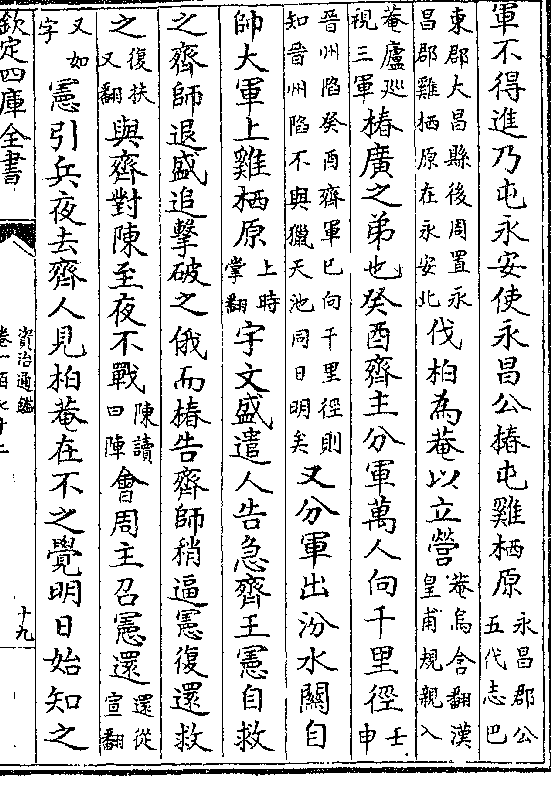 軍不得進乃屯永安使永昌公椿屯雞栖原永昌郡公五代志巴
東郡大昌縣後周置永昌郡雞栖原在永安北伐柏為菴以立營菴烏含翻漢皇甫規親入
菴廬巡視三軍椿廣之弟也癸酉齊主分軍萬人向千里徑壬申
晉州陷癸酉齊軍已向千里徑則知晉州陷不與獵天池同日明矣又分軍出汾水關自
帥大軍上雞栖原上時掌翻宇文盛遣人告急齊王憲自救
之齊師退盛追擊破之俄而椿告齊師稍逼憲復還救
之復扶又翻與齊對陳至夜不戰陳讀曰陣會周主召憲還還從宣翻
又如字憲引兵夜去齊人見柏菴在不之覺明日始知之
欽定四庫全書
資治通鑑
卷一百七十二
十九